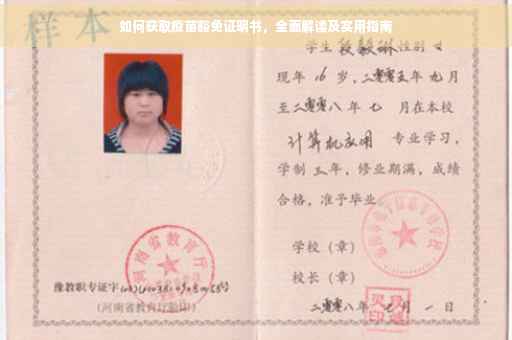 如何获取疫苗豁免证明书，全面解读及实用指南
样本
学生 段毅琳 性别
现年 16 岁，二零零五年 九 月
至二零零八年 七 月在本校
计算机应用 专业学习，
学制 三 年，修业期满，成绩
合格，准予毕业。
学校（章）
校长（章）
二零零八年 七 月 一 日
河南省教育厅
豫教职专证字
（河南省教育厅验印）